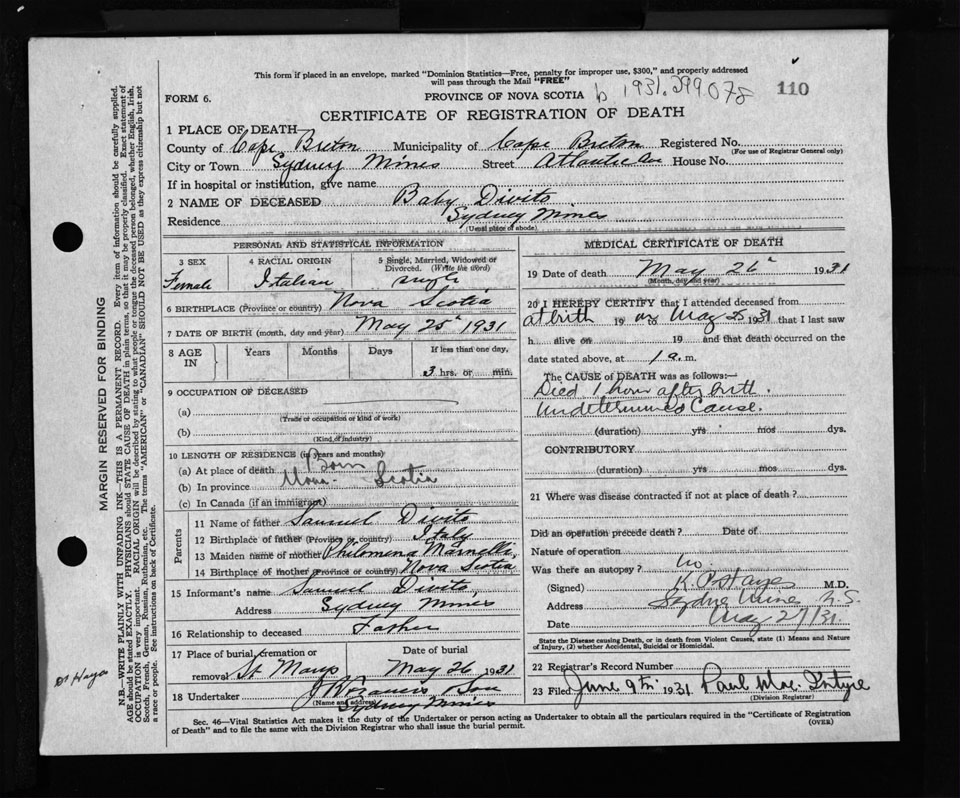 This form if placed in an envelope, marked "Dominion Statistics—Free, penalty for improper use, $300," and properly addressed
will pass through the Mail "FREE"
b 1931.299078
110
FORM 6.
PROVINCE OF NOVA SCOTIA
CERTIFICATE OF REGISTRATION OF DEATH
1 PLACE OF DEATH
County of Cape Breton Municipality of Cape Breton Registered No.
(For use of Registrar General only)
City or Town Sydney Mines Street Atlantic Ave House No.
If in hospital or institution, give name
2 NAME OF DECEASED Baby Divito
Residence Sydney Mines
(Usual place of abode)
PERSONAL AND STATISTICAL INFORMATION
3 SEX 4 RACIAL ORIGIN 5 Single, Married, Widowed or
Divorced. (Write the word)
Female Italian single
6 BIRTHPLACE (Province or country) Nova Scotia
7 DATE OF BIRTH (month, day and year) May 25" 1931
8 AGE IN Years Months Days If less than one day,
3 hrs. or min.
9 OCCUPATION OF DECEASED
(a)
(Trade of occupation or kind of work)
(b)
(Kind of industry)
10 LENGTH OF RESIDENCE (in years and months)
(a) At place of death Born
(b) In province Nova Scotia
(c) In Canada (if an immigrant)
Parents
11 Name of father Samuel Divito
12 Birthplace of father (Province or country) Italy
13 Maiden name of mother Philomena Marnelli
14 Birthplace of mother (Province or country) Nova Scotia
15 Informant's name Samuel Divito
Address Sydney Mines
16 Relationship to deceased Father
17 Place of burial, cremation or Date of burial
removal St Marys May 26 1931
18 Undertaker Son
(Name and address) Sydney Mines
MEDICAL CERTIFICATE OF DEATH
19 Date of death May 26" 1931
(Month, day and year)
20 I HEREBY CERTIFY that I attended deceased from
at birth 19 to on May 25 1931 that I last saw
h alive on 19 and that death occurred on the
date stated above, at 1 a. m.
The CAUSE of DEATH was as follows:—
Died 1 hour after birth.
Undetermined Cause.
(duration) yrs mos dys.
CONTRIBUTORY
(duration) yrs mos dys.
21 Where was disease contracted if not at place of death?
Did an operation precede death? Date of
Nature of operation
Was there an autopsy? no.
(Signed) Hayes M.D.
Address Sydney Mines N.S.
Date May 27/31
State the Disease causing Death, or in death from Violent Causes, state (1) Means and Nature
of Injury, (2) whether Accidental, Suicidal or Homicidal.
22 Registrar's Record Number
23 Filed June 9th 1931 Paul
(Division Registrar)
Sec. 46—Vital Statistics Act makes it the duty of the Undertaker or person acting as Undertaker to obtain all the particulars required in the "Certificate of Registration
of Death" and to file the same with the Division Registrar who shall issue the burial permit.
(OVER)
MARGIN RESERVED FOR BINDING
N.B.—WRITE PLAINLY WITH UNFADING INK—THIS IS A PERMANENT RECORD. Every item of information should be carefully supplied.
AGE should be stated EXACTLY. PHYSICIANS should STATE CAUSE OF DEATH in plain terms, so that it may be properly classified. Exact statement of
OCCUPATION is very important. RACIAL ORIGIN will be described by stating to what people or tongue the deceased person belonged, whether English, Irish,
Scotch, French, German, Russian, Ruthenian, etc. The terms "AMERICAN" or "CANADIAN" SHOULD NOT BE USED as they express citizenship but not
a race or people. See instructions on back of Certificate.
Dr Hayes